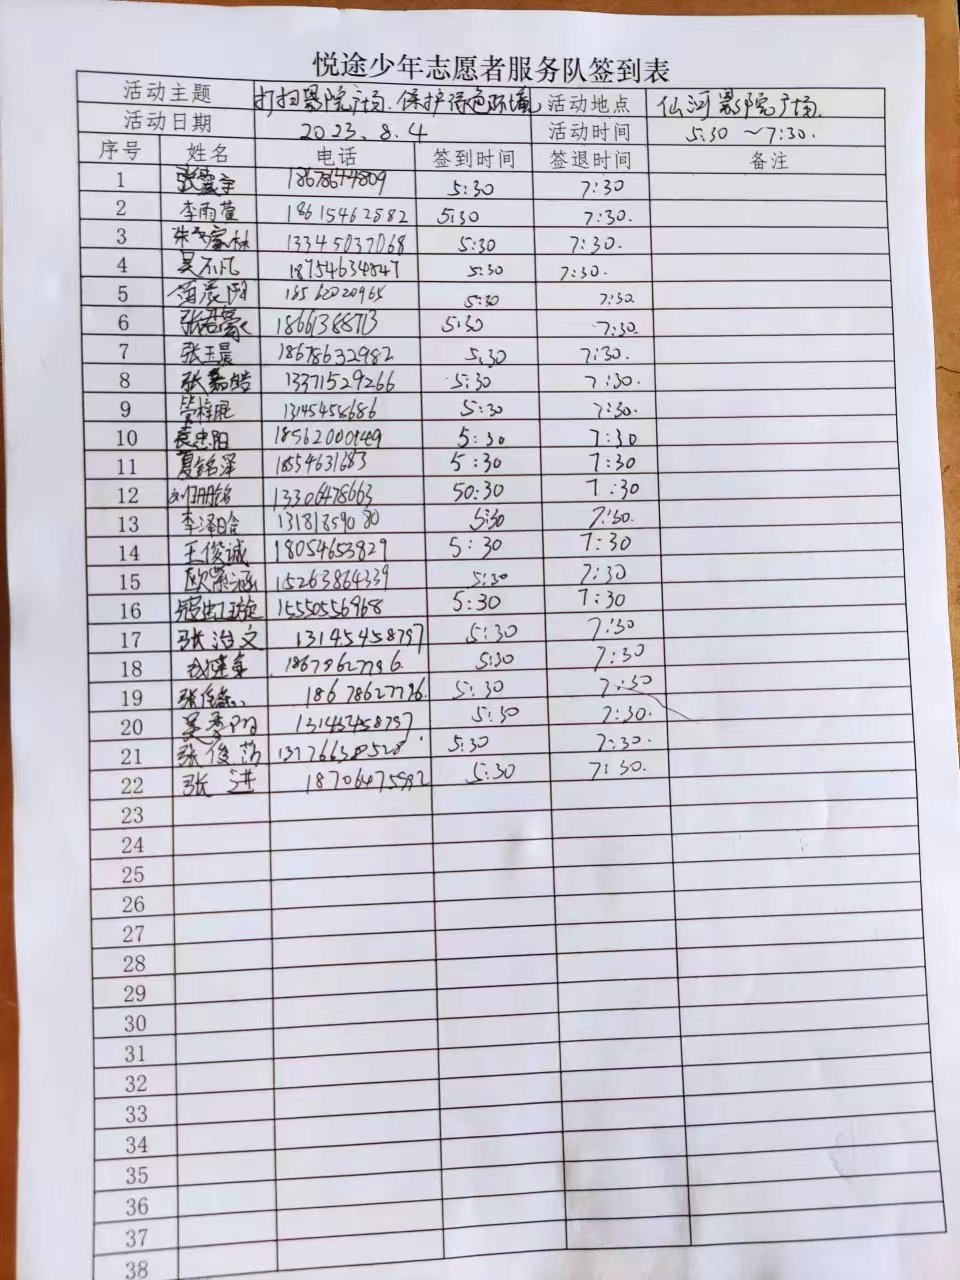 悦途少年志愿者服务队签到表
活动主题 打扫影院广场.保护绿色环境 活动地点 仙河影院广场.
活动日期 2023.8.4 活动时间 5:30 ~7:30.
序号 姓名 电话 签到时间 签退时间 备注
1 18678644809 5:30 7:30
2 李雨萱 18615462582 5:30 7:30.
3 13345037068 5:30 7:30.
4 吴不凡 18754634547 5:30 7:30.
5 18562020965 5:30 7:30
6 18661388713 5:30 7:30.
7 张玉晨 18678632982 5:30 7:30.
8 张嘉皓 13371529266 5:30 7:30.
9 管梓琨 13145458686 5:30 7:30.
10 袁忠阳 18562000149 5:30 7:30
11 夏铭泽 18554631683 5:30 7:30
12 13306478663 50:30 7:30
13 李泽晗 13181859080 5:30 7:30.
14 王俊诚 18054653829 5:30 7:30
15 欧萦涵 15263864339 5:30 7:30
16 15550556968 5:30 7:30
17 张治文 13145458797 5:30 7:30
18 18678627796. 5:30 7:30
19 18678627796. 5:30 7:30
20 吴季阳 13145458797 5:30 7:30.
21 张俊范 13776638528 5:30 7:30.
22 张进 18706475992 5:30 7:30.
23
24
25
26
27
28
29
30
31
32
33
34
35
36
37
38